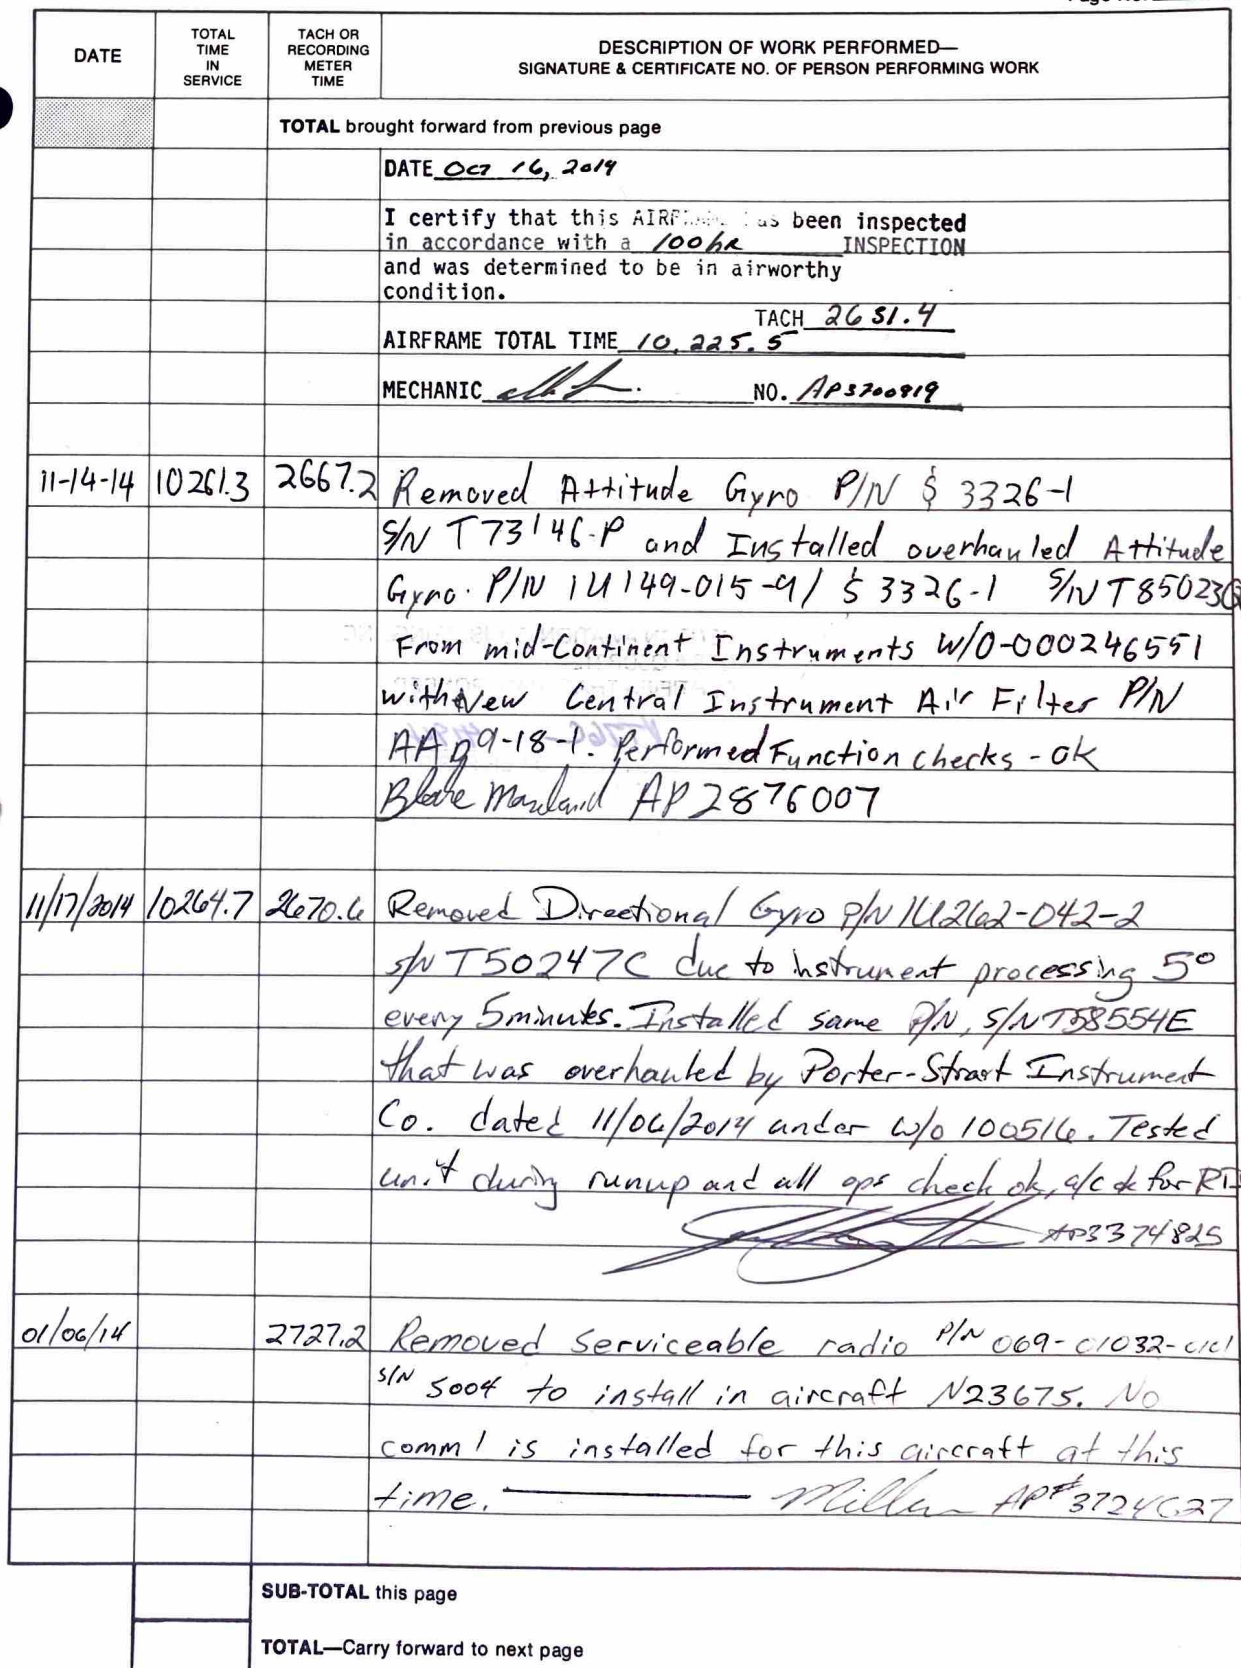 Page No.
DATE
TOTAL TIME IN SERVICE
TACH OR RECORDING METER TIME
DESCRIPTION OF WORK PERFORMED—
SIGNATURE & CERTIFICATE NO. OF PERSON PERFORMING WORK
TOTAL brought forward from previous page
DATE Oct 16, 2014
I certify that this AIRFRAME has been inspected
in accordance with a 100hr INSPECTION
and was determined to be in airworthy
condition.
TACH 2631.4
AIRFRAME TOTAL TIME 10,225.5
MECHANIC NO. AP3700819
11-14-14 10261.3 2667.2 Removed Attitude Gyro P/N $ 3326-1
S/N T73146-P and Installed overhauled Attitude
Gyro. P/N 1U149-015-9/ $ 3326-1 S/N T85023G
From mid-Continent Instruments W/O-000246551
with New Central Instrument Air Filter P/N
9-18-1. Performed Function checks - ok
AP 2876007
11/17/2014 10264.7 2670.6 Removed Directional Gyro P/N 1U262-042-2
S/N T50247C due to instrument processing 5°
every 5minutes. Installed same P/N, S/N T58554E
that was overhauled by Porter-Strait Instrument
Co. dated 11/06/2014 under W/o 100516. Tested
unit during runup and all ops check ok, a/c ok for
AP3374825
01/06/14 2727.2 Removed Serviceable radio P/N 069-01032-0101
S/N 5004 to install in aircraft N23675. No
comm 1 is installed for this aircraft at this
time. Miller AP# 3724627
SUB-TOTAL this page
TOTAL—Carry forward to next page